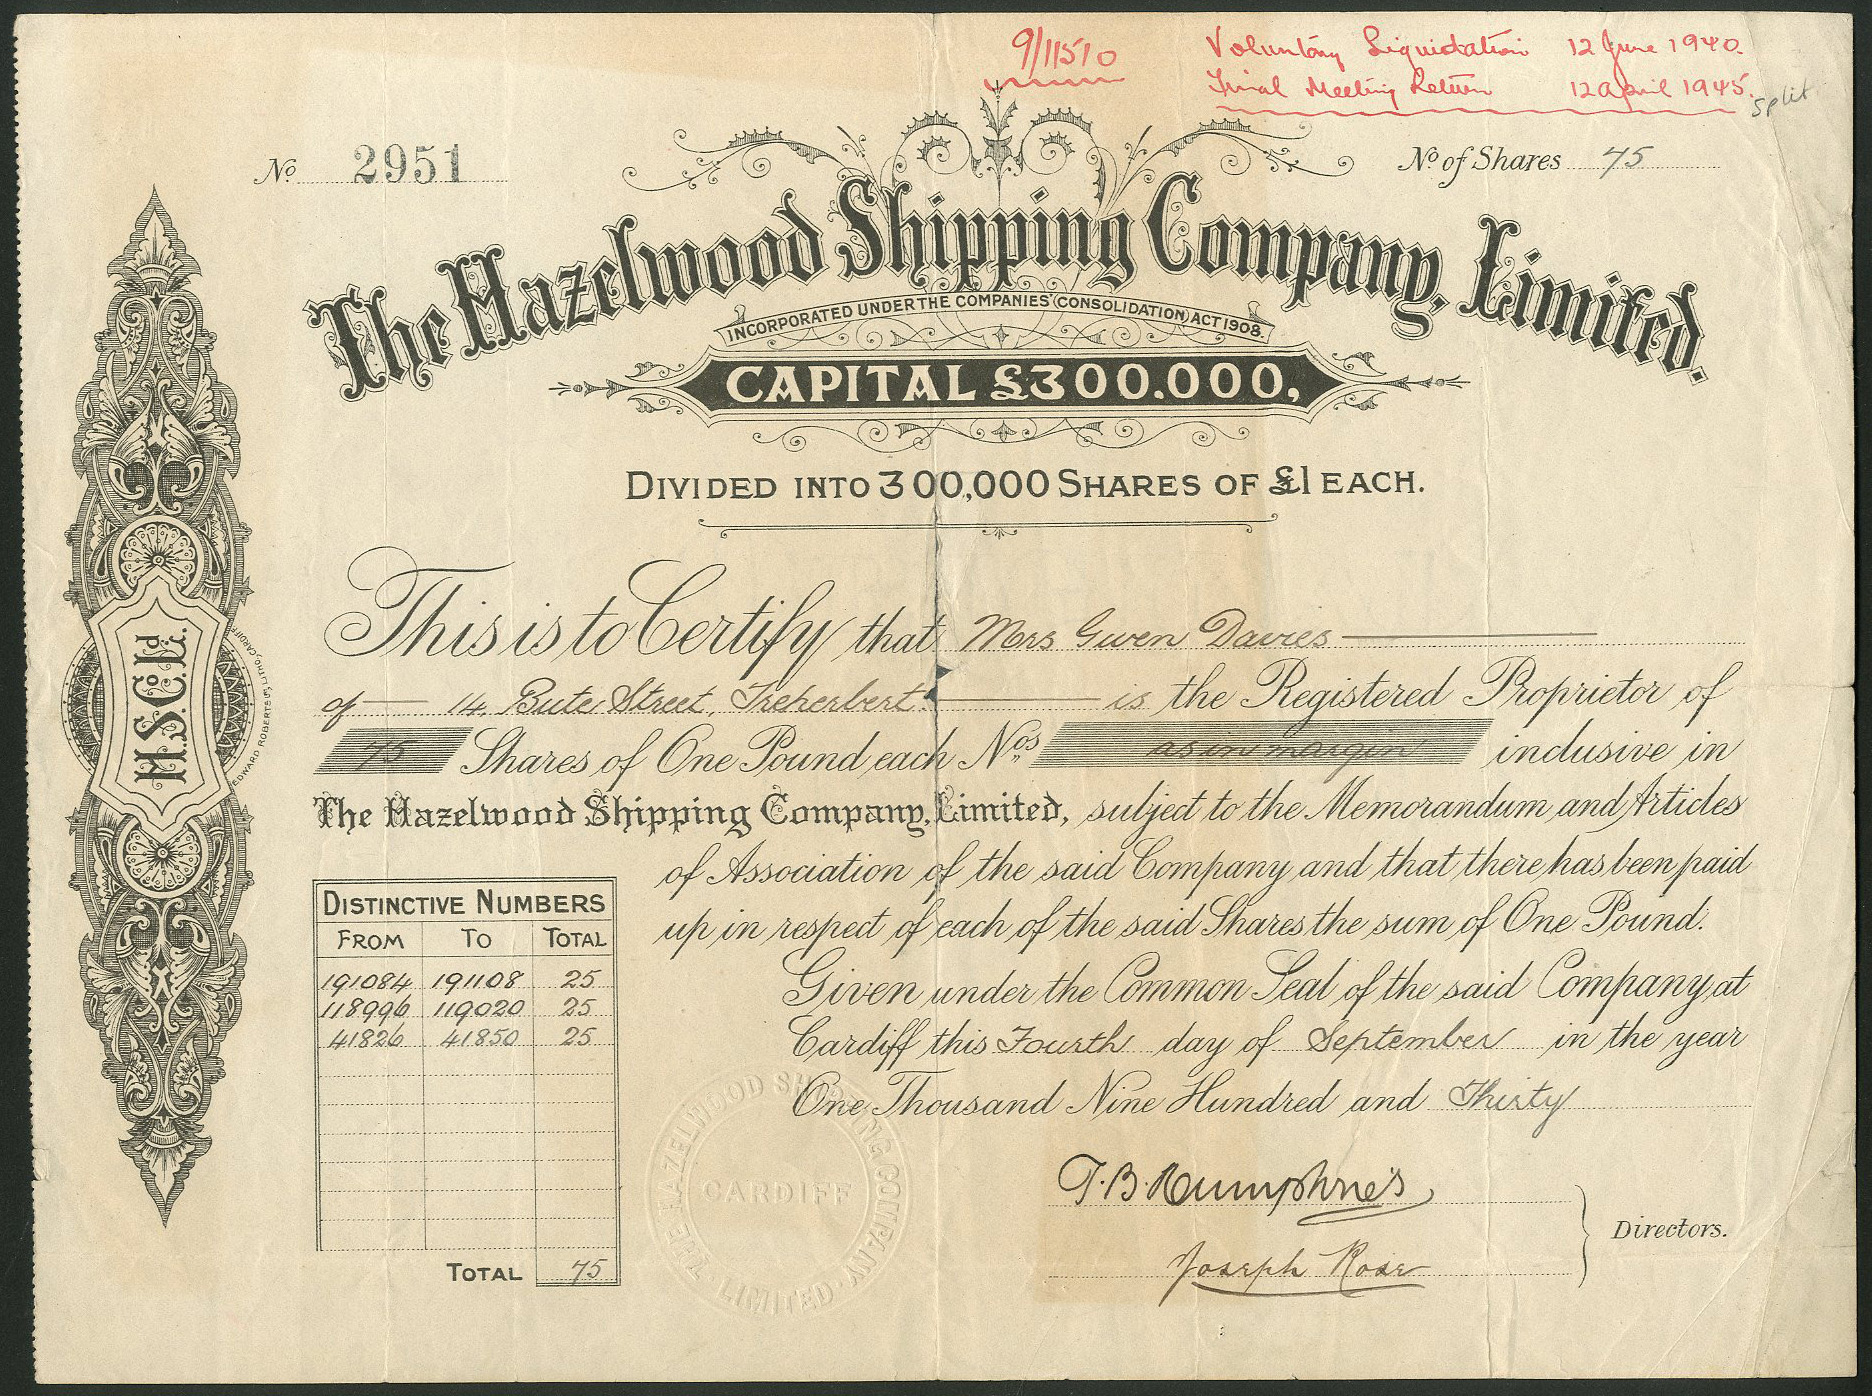 9/11510
Voluntary Liquidation 12 June 1940.
Final Meeting Return 12 April 1945.
split
No 2951
No of Shares 75
The Hazelwood Shipping Company, Limited.
INCORPORATED UNDER THE COMPANIES (CONSOLIDATION) ACT 1908.
CAPITAL £300.000,
DIVIDED INTO 300,000 SHARES OF £1 EACH.
This is to Certify that Mrs Gwen Davies
of 14, Bute Street, Treherbert. is the Registered Proprietor of
75 Shares of One Pound each Nos as in margin inclusive in
The Hazelwood Shipping Company, Limited, subject to the Memorandum and Articles
of Association of the said Company and that there has been paid
up in respect of each of the said Shares the sum of One Pound.
Given under the Common Seal of the said Company, at
Cardiff this Fourth day of September in the year
One Thousand Nine Hundred and Thirty
DISTINCTIVE NUMBERS
FROM TO TOTAL
191084 191108 25
118996 119020 25
41826 41850 25
TOTAL 75
THE HAZELWOOD SHIPPING COMPANY LIMITED
CARDIFF
T. B. Humphries
Joseph Rose
Directors.
H.S.Co. Ld.
EDWARD ROBERTS LITHO, CARDIFF